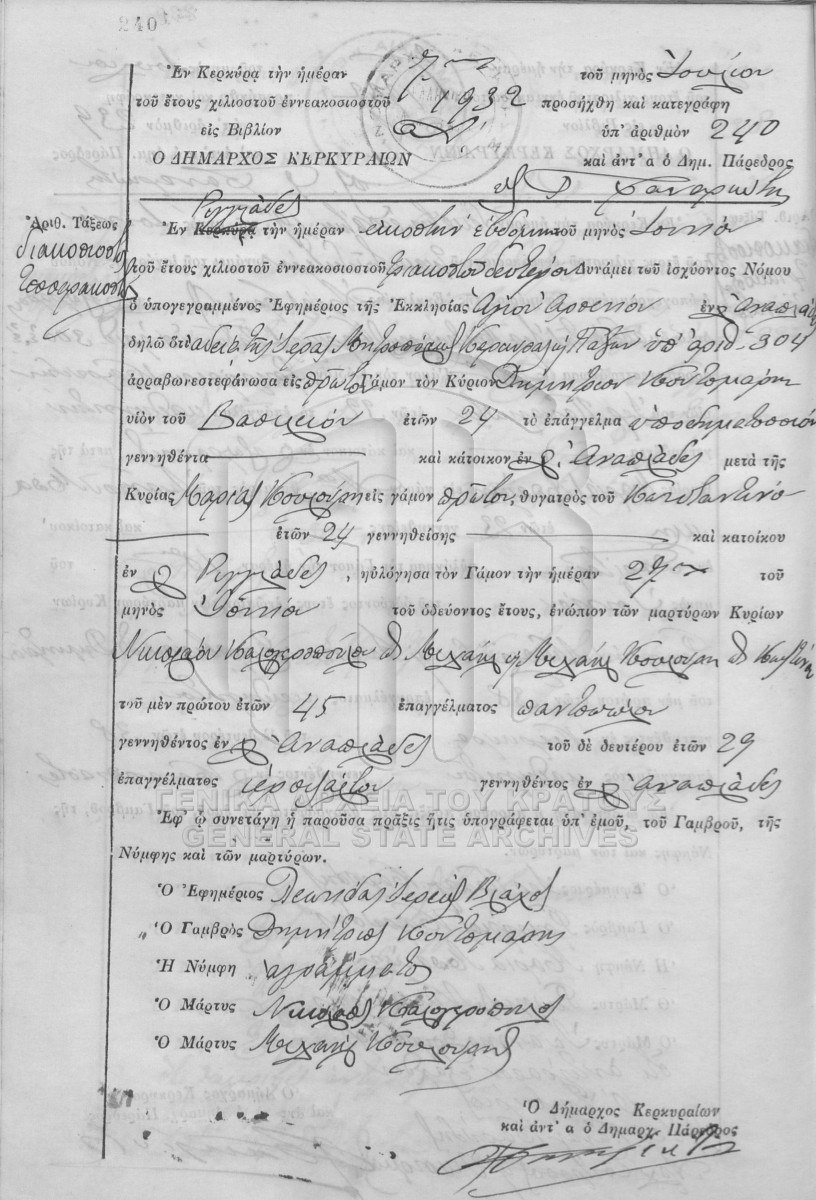 240
Ἐν Κερκύρᾳ τὴν ἡμέραν 7ην τοῦ μηνὸς Ἰουλίου
τοῦ ἔτους χιλιοστοῦ ἐννεακοσιοστοῦ 1932 προσήχθη καὶ κατεγράφη
εἰς Βιβλίον ὑπ' ἀριθμὸν 240
Ὁ ΔΗΜΑΡΧΟΣ ΚΕΡΚΥΡΑΙΩΝ καὶ ἀντ' α ὁ Δημ. Πάρεδρος
Ἀριθ. Τάξεως
διακοσιοστὸν
τεσσαρακοστὸν
Ἐν Κερκύρᾳ τὴν ἡμέραν εἰκοστὴν ἑβδόμην τοῦ μηνὸς Ἰουνίου
τοῦ ἔτους χιλιοστοῦ ἐννεακοσιοστοῦ τριακοστοῦ δευτέρου Δυνάμει τοῦ ἰσχύοντος Νόμου
ὁ ὑπογεγραμμένος Ἐφημέριος τῆς Ἐκκλησίας Ἁγίου Ἀρσενίου ἐν
δηλῶ ὅτι ἀδείᾳ τῆς Ἱερᾶς Μητροπόλεως Κερκύρας Παξῶν ὑπ' ἀριθ. 304
ἀρραβωνεστεφάνωσα εἰς πρῶτον Γάμον τὸν Κύριον Δημήτριον Κοντομάρην
υἱὸν τοῦ Βασιλείου ἐτῶν 24 τὸ ἐπάγγελμα ὑποδηματοποιὸν
γεννηθέντα καὶ κάτοικον ἐν μετὰ τῆς
Κυρίας Μαρίας εἰς γάμον πρῶτον, θυγατρὸς τοῦ Κωνσταντίνου
ἐτῶν 24 γεννηθείσης καὶ κατοίκου
ἐν , ηὐλόγησα τὸν Γάμον τὴν ἡμέραν 27ην τοῦ
μηνὸς Ἰουνίου τοῦ ὁδεύοντος ἔτους, ἐνώπιον τῶν μαρτύρων Κυρίων
Νικολάου Καλογεροπούλου Μιχαὴλ Μιχαὴλ
τοῦ μὲν πρώτου ἐτῶν 45 ἐπαγγέλματος παντοπώλου
γεννηθέντος ἐν τοῦ δὲ δευτέρου ἐτῶν 29
ἐπαγγέλματος ἱεροψάλτου γεννηθέντος ἐν
ΓΕΝΙΚΑ ΑΡΧΕΙΑ ΤΟΥ ΚΡΑΤΟΥΣ
Ἐφ' ᾧ συνετάγη ἡ παροῦσα πρᾶξις ἥτις ὑπογράφεται ὑπ' ἐμοῦ, τοῦ Γαμβροῦ, τῆς
GENERAL STATE ARCHIVES
Νύμφης καὶ τῶν μαρτύρων.
Ὁ Ἐφημέριος Λεωνίδας Ἱερεὺς Βλάχος
Ὁ Γαμβρὸς Δημήτριος Κοντομάρης
Ἡ Νύμφη ἀγράμματος
Ὁ Μάρτυς Νικόλαος Καλογερόπουλος
Ὁ Μάρτυς Μιχαὴλ
Ὁ Δήμαρχος Κερκυραίων
καὶ ἀντ' α ὁ Δημαρχ. Πάρεδρος